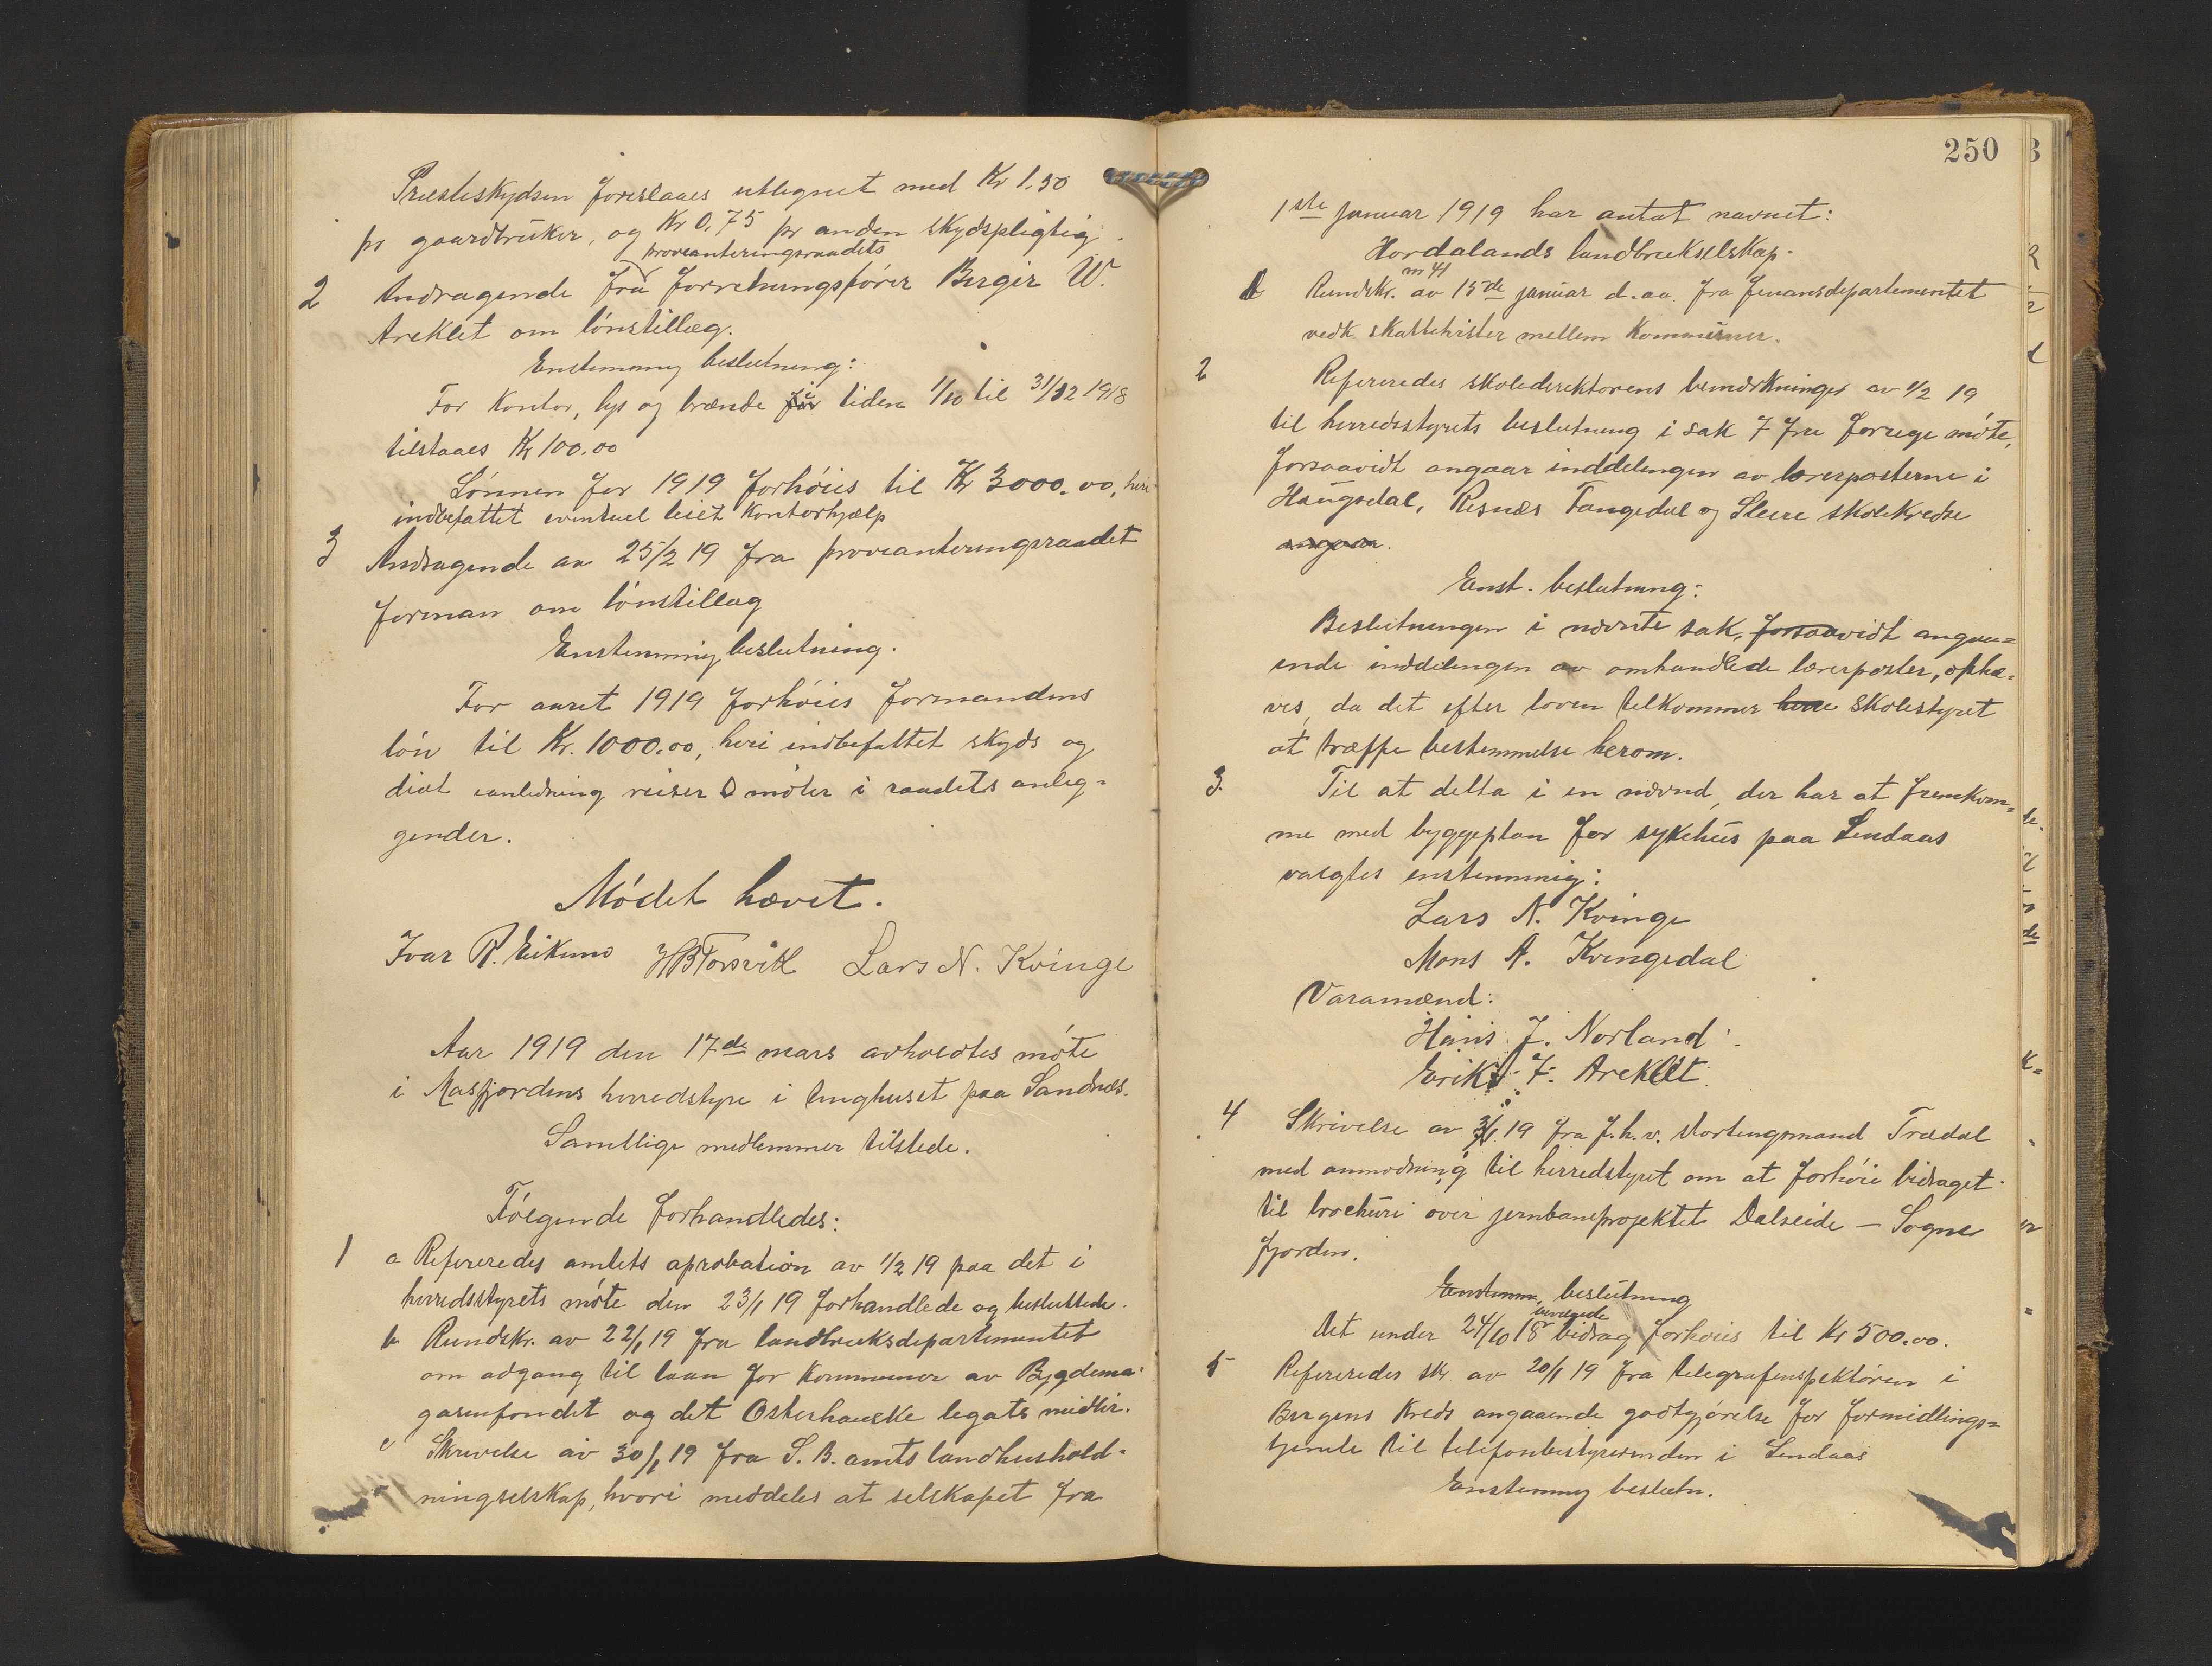 Presteskydsen foreslaaes utlegnet med Kr 1.50
pr gaardbruker, og Kr 0,75 pr anden skydspligtig.
2 Andragende fra proveanteringsraadets forretningsfører Birger W.
Areklet om lønstillæg.
Enstemmig beslutning:
For Kontor, lys og brænde i tiden 1/10 til 31/12 1918
tilstaaes Kr 100.00
Lønnen for 1919 forhøies til Kr 3000.00, heri
indbefattet eventuel leiet Kontorhjælp
3 Andragende av 25/2 19 fra proveanteringsraadet
forman om lønstillæg
Enstemmig beslutning.
For aaret 1919 forhøies formandens
løn til Kr. 1000.00, heri indbefattet skyds og
diæt i anledning reiser & møter i raadets anleg-
gender.
Mødet hævet.
Ivar R. Eikmo HBTorsvik Lars N. Kvinge
Aar 1919 den 17de mars avholdtes møte
i Masfjordens herredstyre i tinghuset paa Sandnes.
Samtlige medlemmer tilstede.
Følgende forhandledes:
1 a Refereredes amtets aprobation av 1/2 19 paa det i
herredsstyrets møte den 23/1 19 forhandlede og besluttede.
b Rundskr. av 22/1 19 fra landbruksdepartementet
om adgang til laan for Kommuner av Bygdema-
gasinfondet og det Osterhauske legats midler.
c Skrivelse av 30/1 19 fra S. B. amts landhushold-
ningselskap, hvori meddeles at selskapet fra
250
1ste januar 1919 har antat navnet:
Hordalands landbrukselskap.
d Rundskr. nr 41 av 15de januar d.aa. fra finansdepartementet
vedk. skattetvister mellem Kommuner.
2 Refereredes skoledirektørens bemærkninger av 1/2 19
til herredsstyrets beslutning i sak 7 fra forrige møte,
forsaavidt angaar inddelingen av lærerposterne i
Haugsdal, Risnes Tangedal og Sleire skolekredse
angaar.
Enst. beslutning:
Beslutningen i nævnte sak, forsaavidt angaa-
ende inddelingen av omhandlede lærerposter, ophæ-
ves, da det efter loven tilkommer herre skolestyret
at træffe bestemmelse herom.
3. Til at delta i en nævnd, der har at fremkom-
me med byggeplan for sykehus paa Lindaas
valgtes enstemmig:
Lars N. Kvinge
Mons A. Kvingedal
Varamænd:
Hans J. Norland
Erik J. Areklet
4 Skrivelse av 3/1 19 fra f.h.v. stortingsmand Trædal
med anmodning til herredstyret om at forhøie bidraget
til brochure over jernbaneprosjektet Dalseide – Sogne
fjorden.
Enstemm. beslutning
Det under 24/10 18 bevilgede bidrag forhøies til Kr 500.00.
5 Refereredes skr. av 20/1 19 fra telegrafinspektøren i
Bergens Kreds angaaende godtgjørelse for formidlings-
tjeneste til telefonbestyrerinden i Lindaas
Enstemmig beslutn.